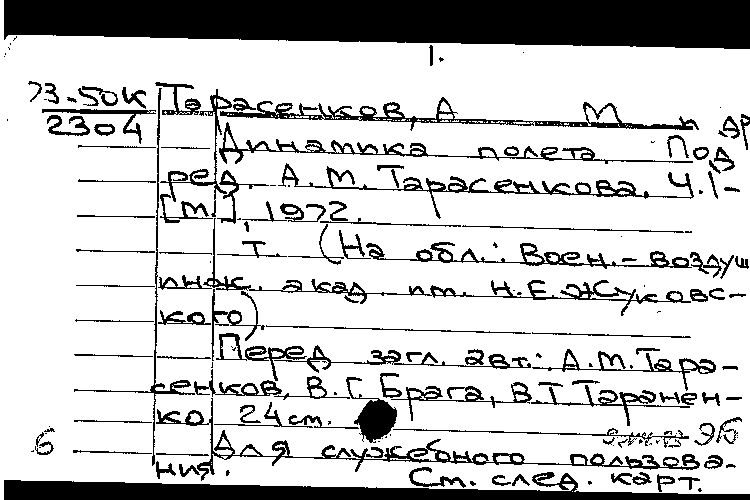 1.
73-50к Тарасенков, А М и др
2304
Динамика полета. Под
ред. А.М. Тарасенкова. Ч.1-
[М.], 1972.
т. (На обл.: Воен.-воздуш
инж. акад. им. Н.Е.Жуковс-
кого).
Перед загл. авт.: А.М.Тара-
сенков, В.Г. Брага, В.Т.Таранен-
ко. 24 см.
6 96
Для служебного пользова-
ния. См. след. карт.